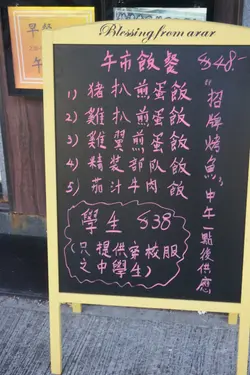 早餐
午
Blessing from arar
午市飯餐 $48-
1) 豬扒煎蛋飯
2) 雞扒煎蛋飯
3) 雞翼煎蛋飯
4) 精裝部隊飯
5) 茄汁牛肉飯
學生 $38
(只提供穿校服
之中學生)
"招牌烤魚"中午一點後供應